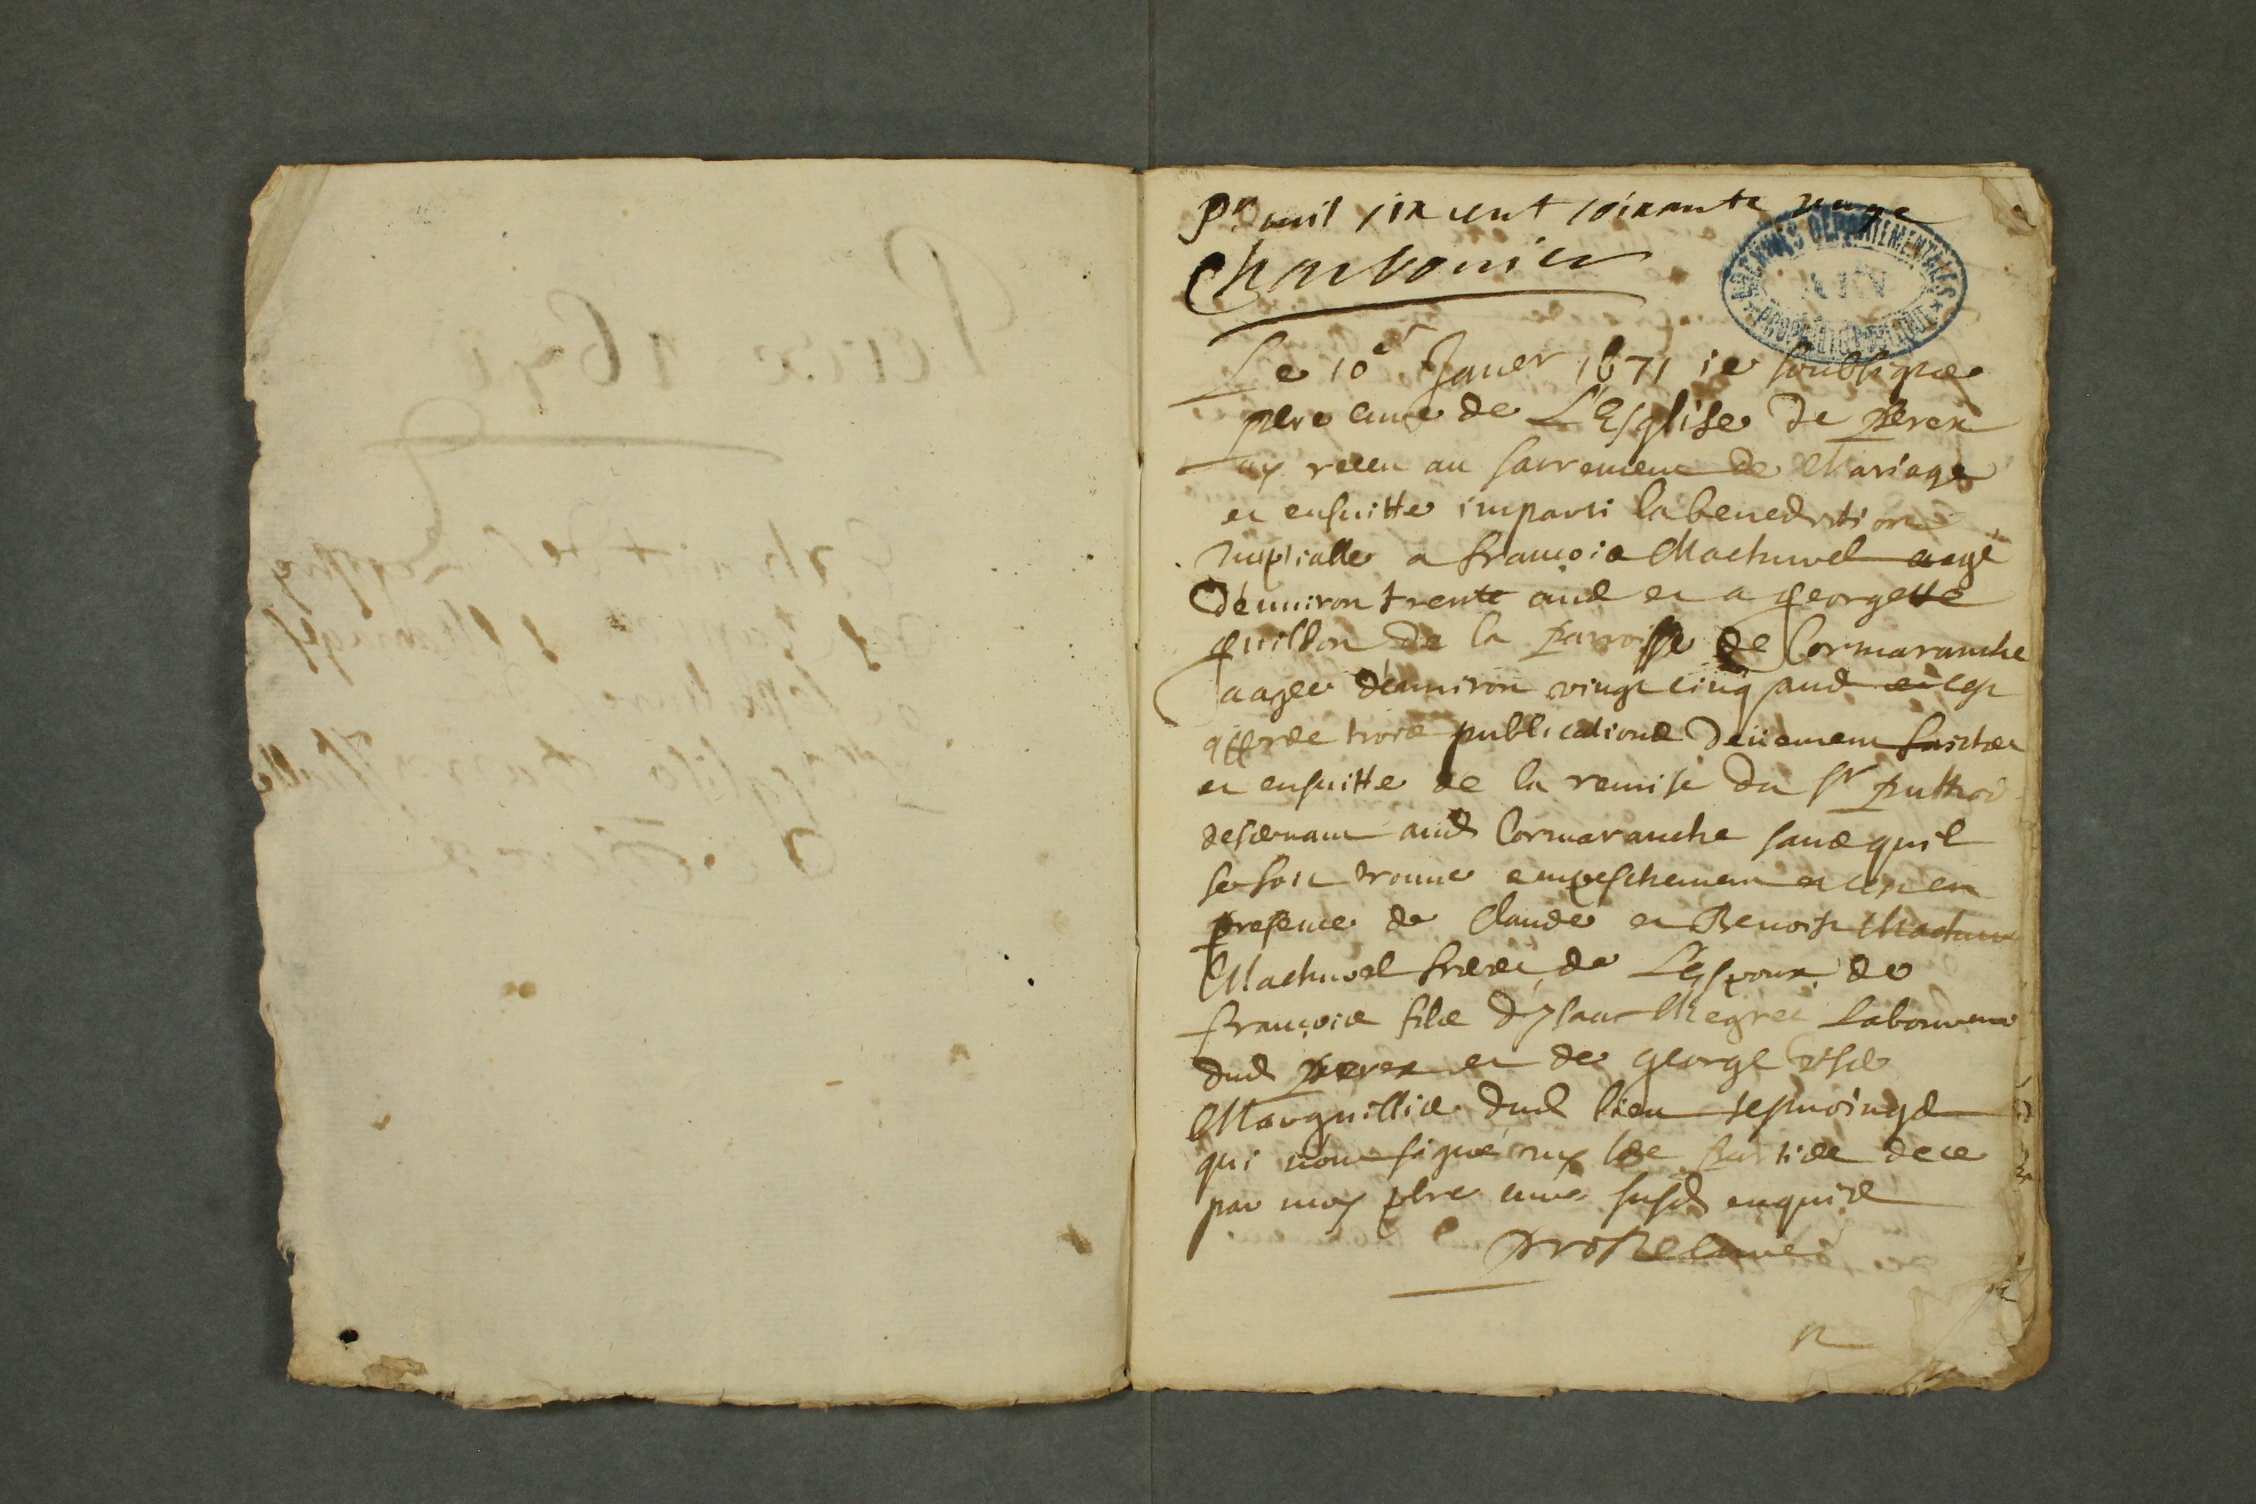 Pr mil six cent soixante unze
Charbonier
ARCHIVES DEPARTEMENTALES
AIN
PROPRIETE PUBLIQUE
Le 10e Janer 1671 ie soubsigne
pbre cure de L'Esglise de perex
ay receu au sacrement de Mariage
et ensuitte imparti la benediction
nuptialle a françois Machurel aagé
d'enuiron trente ans et a georgette
guillon de la parroisse de Cormaranche
aagee d'enuiron vingt cinq ans et ce
apres trois publications deüement faictes
et ensuitte de la remise du sr
aud Cormaranche sans quil
se soit trouue empeschement et ce en
presence de Claude et Benoist Machure
Machurel freres de L'Espoux de
françois fils d'ysaac Megret Laboureur
dud perex et de george
Marguillier dud lieu tesmoings
qui nont signé ny les parties de ce
par moy pbre cure susd enquis
cure